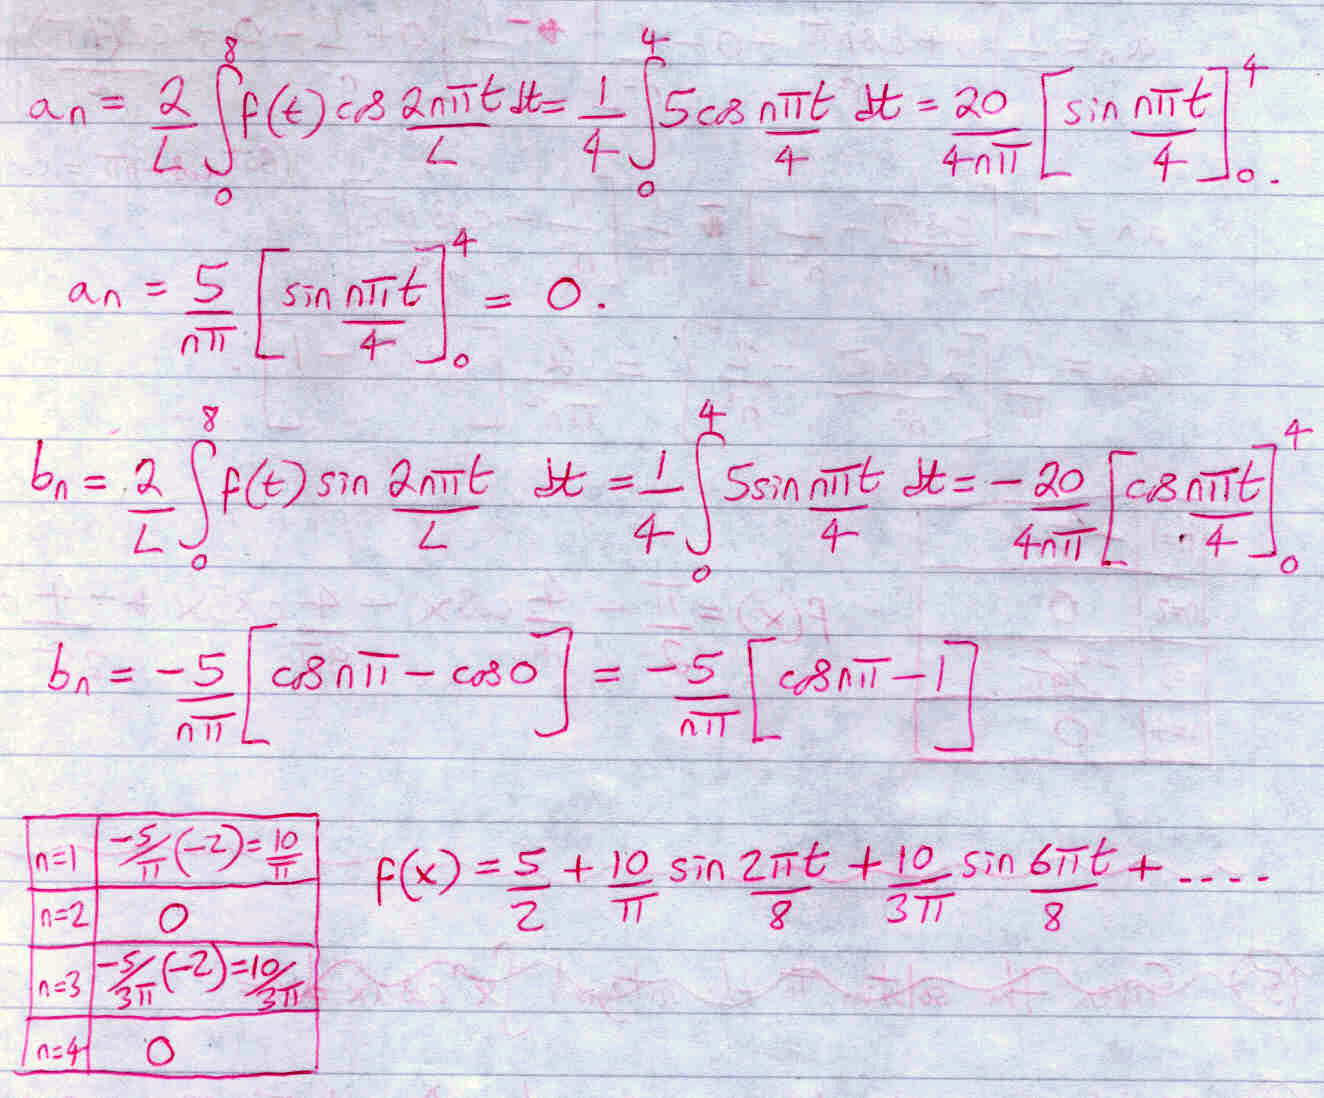 aₙ = 2/L ∫₀⁸ f(t) cos 2nπt/L dt = 1/4 ∫₀⁴ 5cos nπt/4 dt = 20/4nπ [sin nπt/4]₀⁴.
aₙ = 5/nπ [sin nπt/4]₀⁴ = 0.
bₙ = 2/L ∫₀⁸ f(t) sin 2nπt/L dt = 1/4 ∫₀⁴ 5sin nπt/4 dt = -20/4nπ [cos nπt/4]₀⁴
bₙ = -5/nπ [cos nπ - cos 0] = -5/nπ [cos nπ - 1]
n=1 -5/π (-2) = 10/π
n=2 0
n=3 -5/3π (-2) = 10/3π
n=4 0
f(x) = 5/2 + 10/π sin 2πt/8 + 10/3π sin 6πt/8 + ....